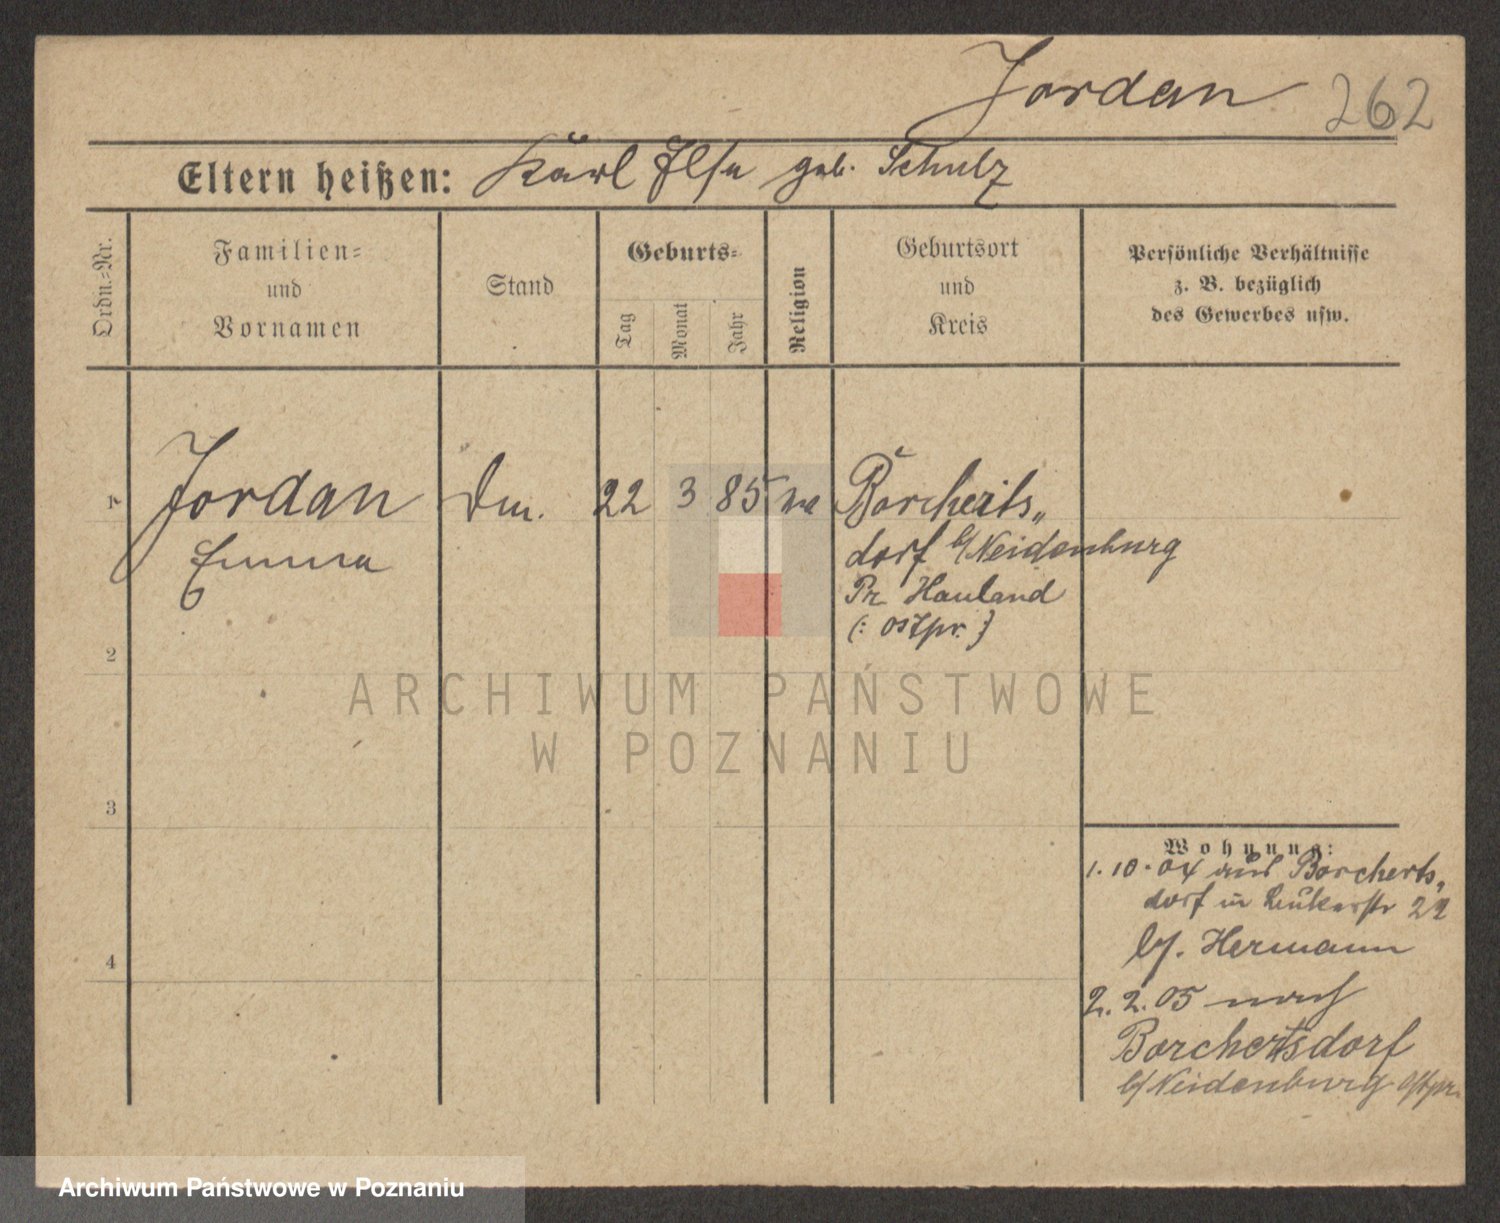 Jordan 262
Eltern heißen: Karl Ilse geb. Schulz
Ordn.-Nr.
Familien-
und
Vornamen
Stand
Geburts-
Tag
Monat
Jahr
Religion
Geburtsort
und
Kreis
Persönliche Verhältnisse
z. B. bezüglich
des Gewerbes usw.
1 Jordan 22 3 85 Borcherts„
Emma dorf b/Neidenburg
Pr. Hauland
(: Ostpr. :)
2
3
4
Wohnung:
1.10.04 aus Borcherts„
dorf in 22
b/. Hermann
2.2.05 nach
Borchertsdorf
b/Neidenburg Ostpr.
ARCHIWUM PAŃSTWOWE
W POZNANIU
Archiwum Państwowe w Poznaniu